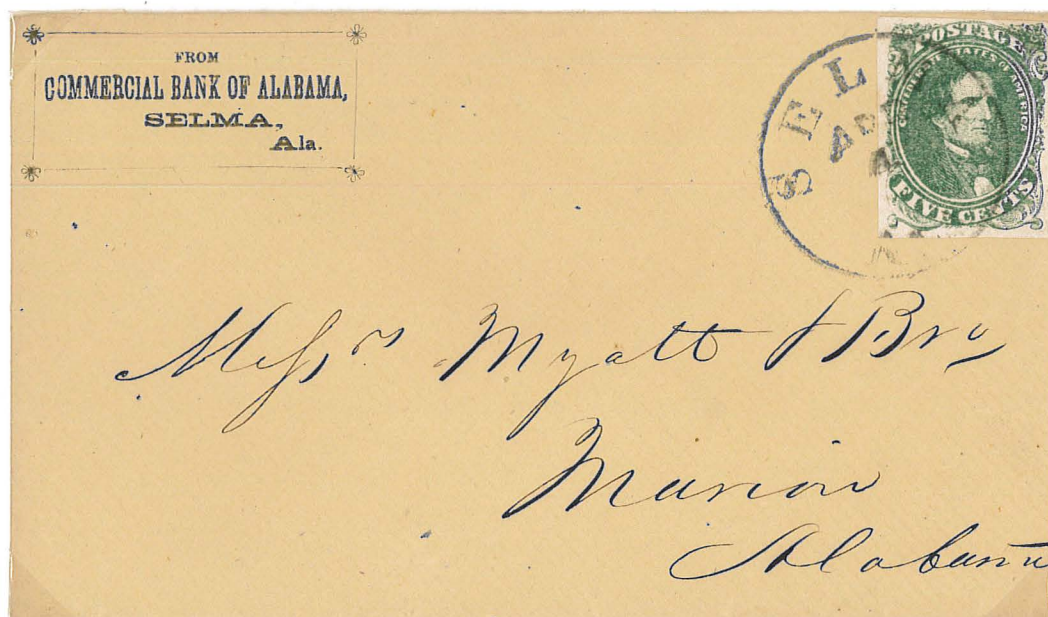 FROM
COMMERCIAL BANK OF ALABAMA,
SELMA,
Ala.
SEL
POSTAGE
CONFEDERATE STATES OF AMERICA
FIVE CENTS
Messrs Myatt & Bro
Marion
Alabama